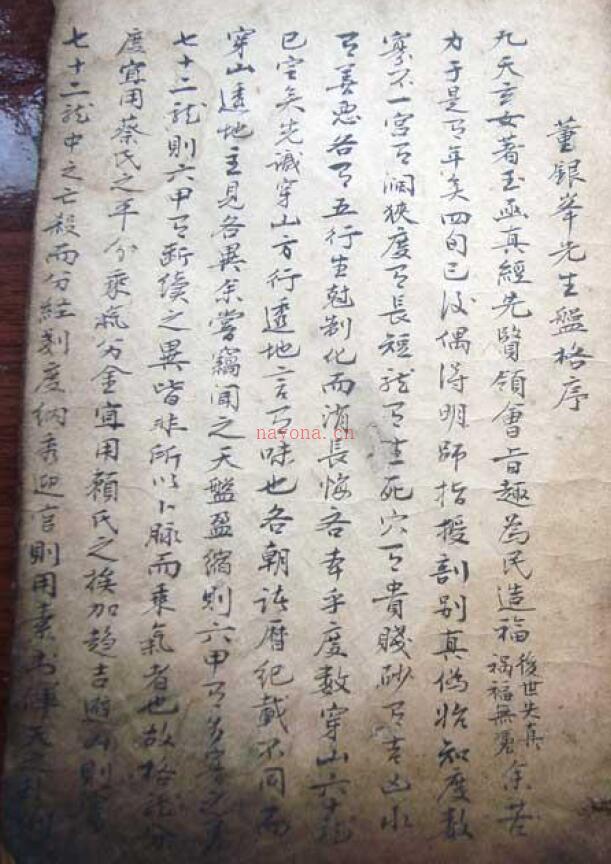 董銀峯先生盤格序
九天玄女著玉函真經先賢領會旨趣為民造福後世失真禍福無憑余苦
力于是有年矣四旬已後偶得明師指授剖別真偽始知度數
寀不一宮有濶狹度有長短龍有生死穴有貴賤砂有吉凶水
有善惡各有五行生尅制化而消長悔吝本乎度數穿山六十龍
已定矣先諴穿山方行透地言有味也各朝諸曆紀載不同而
穿山透地主見各異余嘗竊聞之天盤盈縮則六甲有多寡之
七十二龍則六甲有斷續之異皆非所以卜脉而乘氣者也故格龍分
度宜用蔡氏之平分乘氣分金宜用賴氏之挨加趋吉避凶則
七十二龍中之亡殺而分經刻度納秀迎官則用素書渾天之
nayona.cn